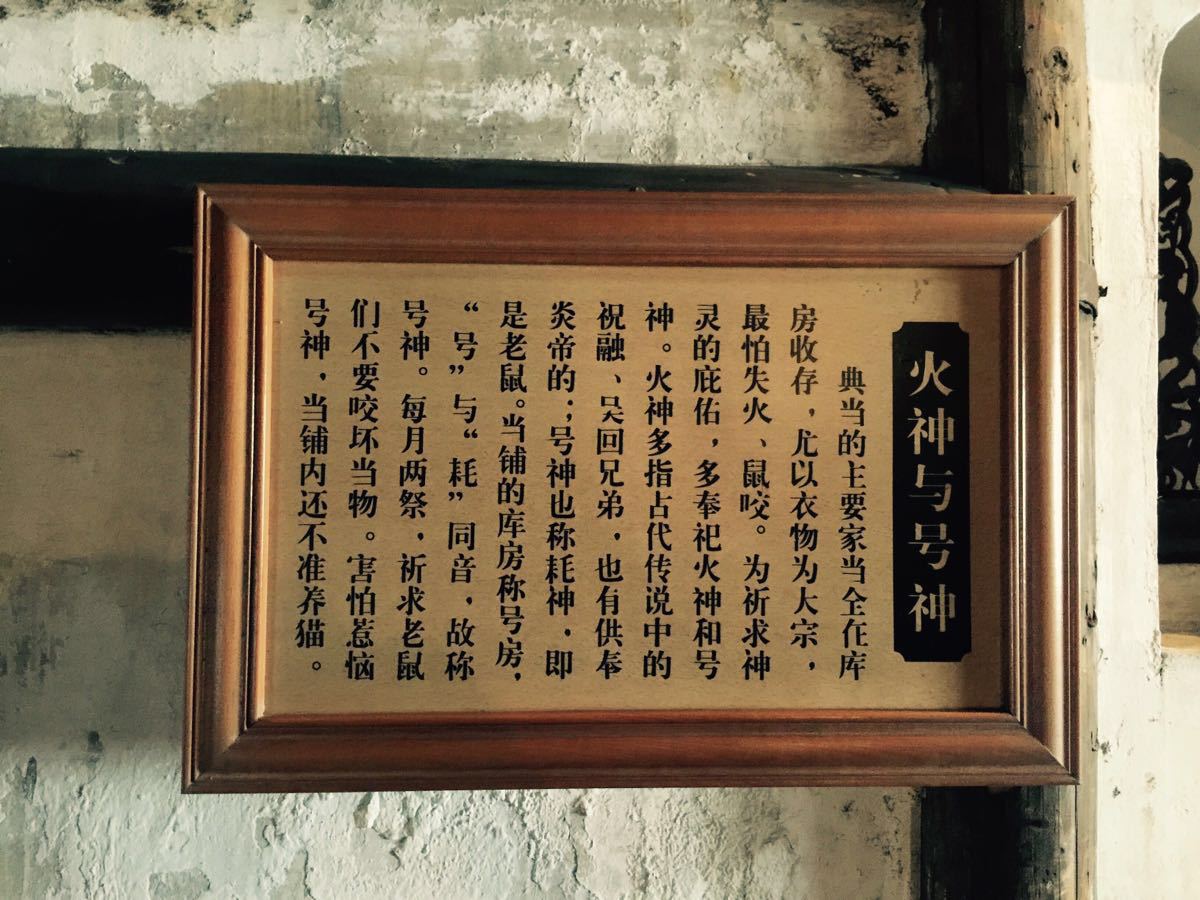 火神与号神
典当的主要家当全在库
房收存，尤以衣物为大宗，
最怕失火、鼠咬。为祈求神
灵的庇佑，多奉祀火神和号
神。火神多指古代传说中的
祝融、吴回兄弟，也有供奉
炎帝的；号神也称耗神，即
是老鼠。当铺的库房称号房，
“号”与“耗”同音，故称
号神。每月两祭，祈求老鼠
们不要咬坏当物。害怕惹恼
号神，当铺内还不准养猫。